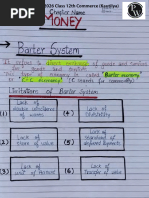 2026 Class 12th Commerce (Kautilya)
Chapter Name
MONEY
→ Barter System
It refers to direct exchange of goods and services
for goods and services.
This type of economy is called "Barter economy"
or "C-C economy" (C stands for commodity)
Limitations of Barter System
(1) Lack of double coincidence of wants
(4) Lack of Divisibility
(2) Lack of common measure of value
(5) Lack of Standard of deferred payment
(3) Lack of store of value
(6) Lack of Transfer of value